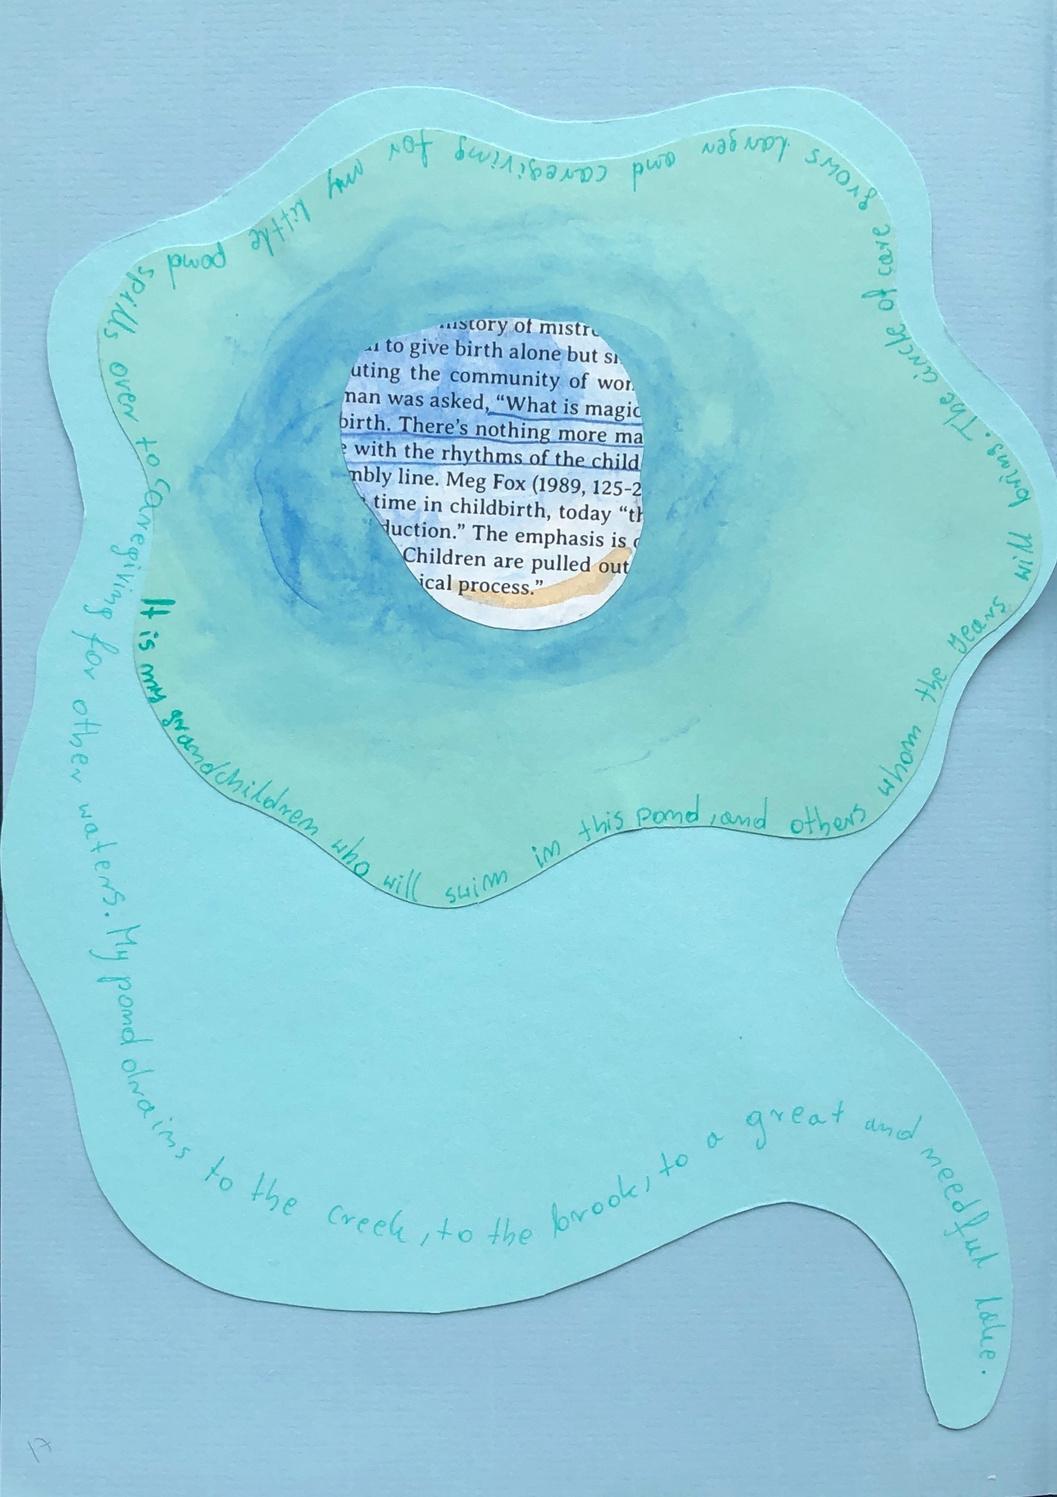 history of mistr
to give birth alone but s
uting the community of wo
man was asked, “What is magic
birth. There’s nothing more ma
e with the rhythms of the child
mbly line. Meg Fox (1989, 125-2
time in childbirth, today “th
duction.” The emphasis is
Children are pulled out
ical process.”
It is my grandchildren who will swim in this pond, and others whom the years will bring. The circle of care grows larger and caregiving for my little pond spills over to
Caregiving for other waters. My pond drains to the creek, to the brook, to a great and needful lake.
17